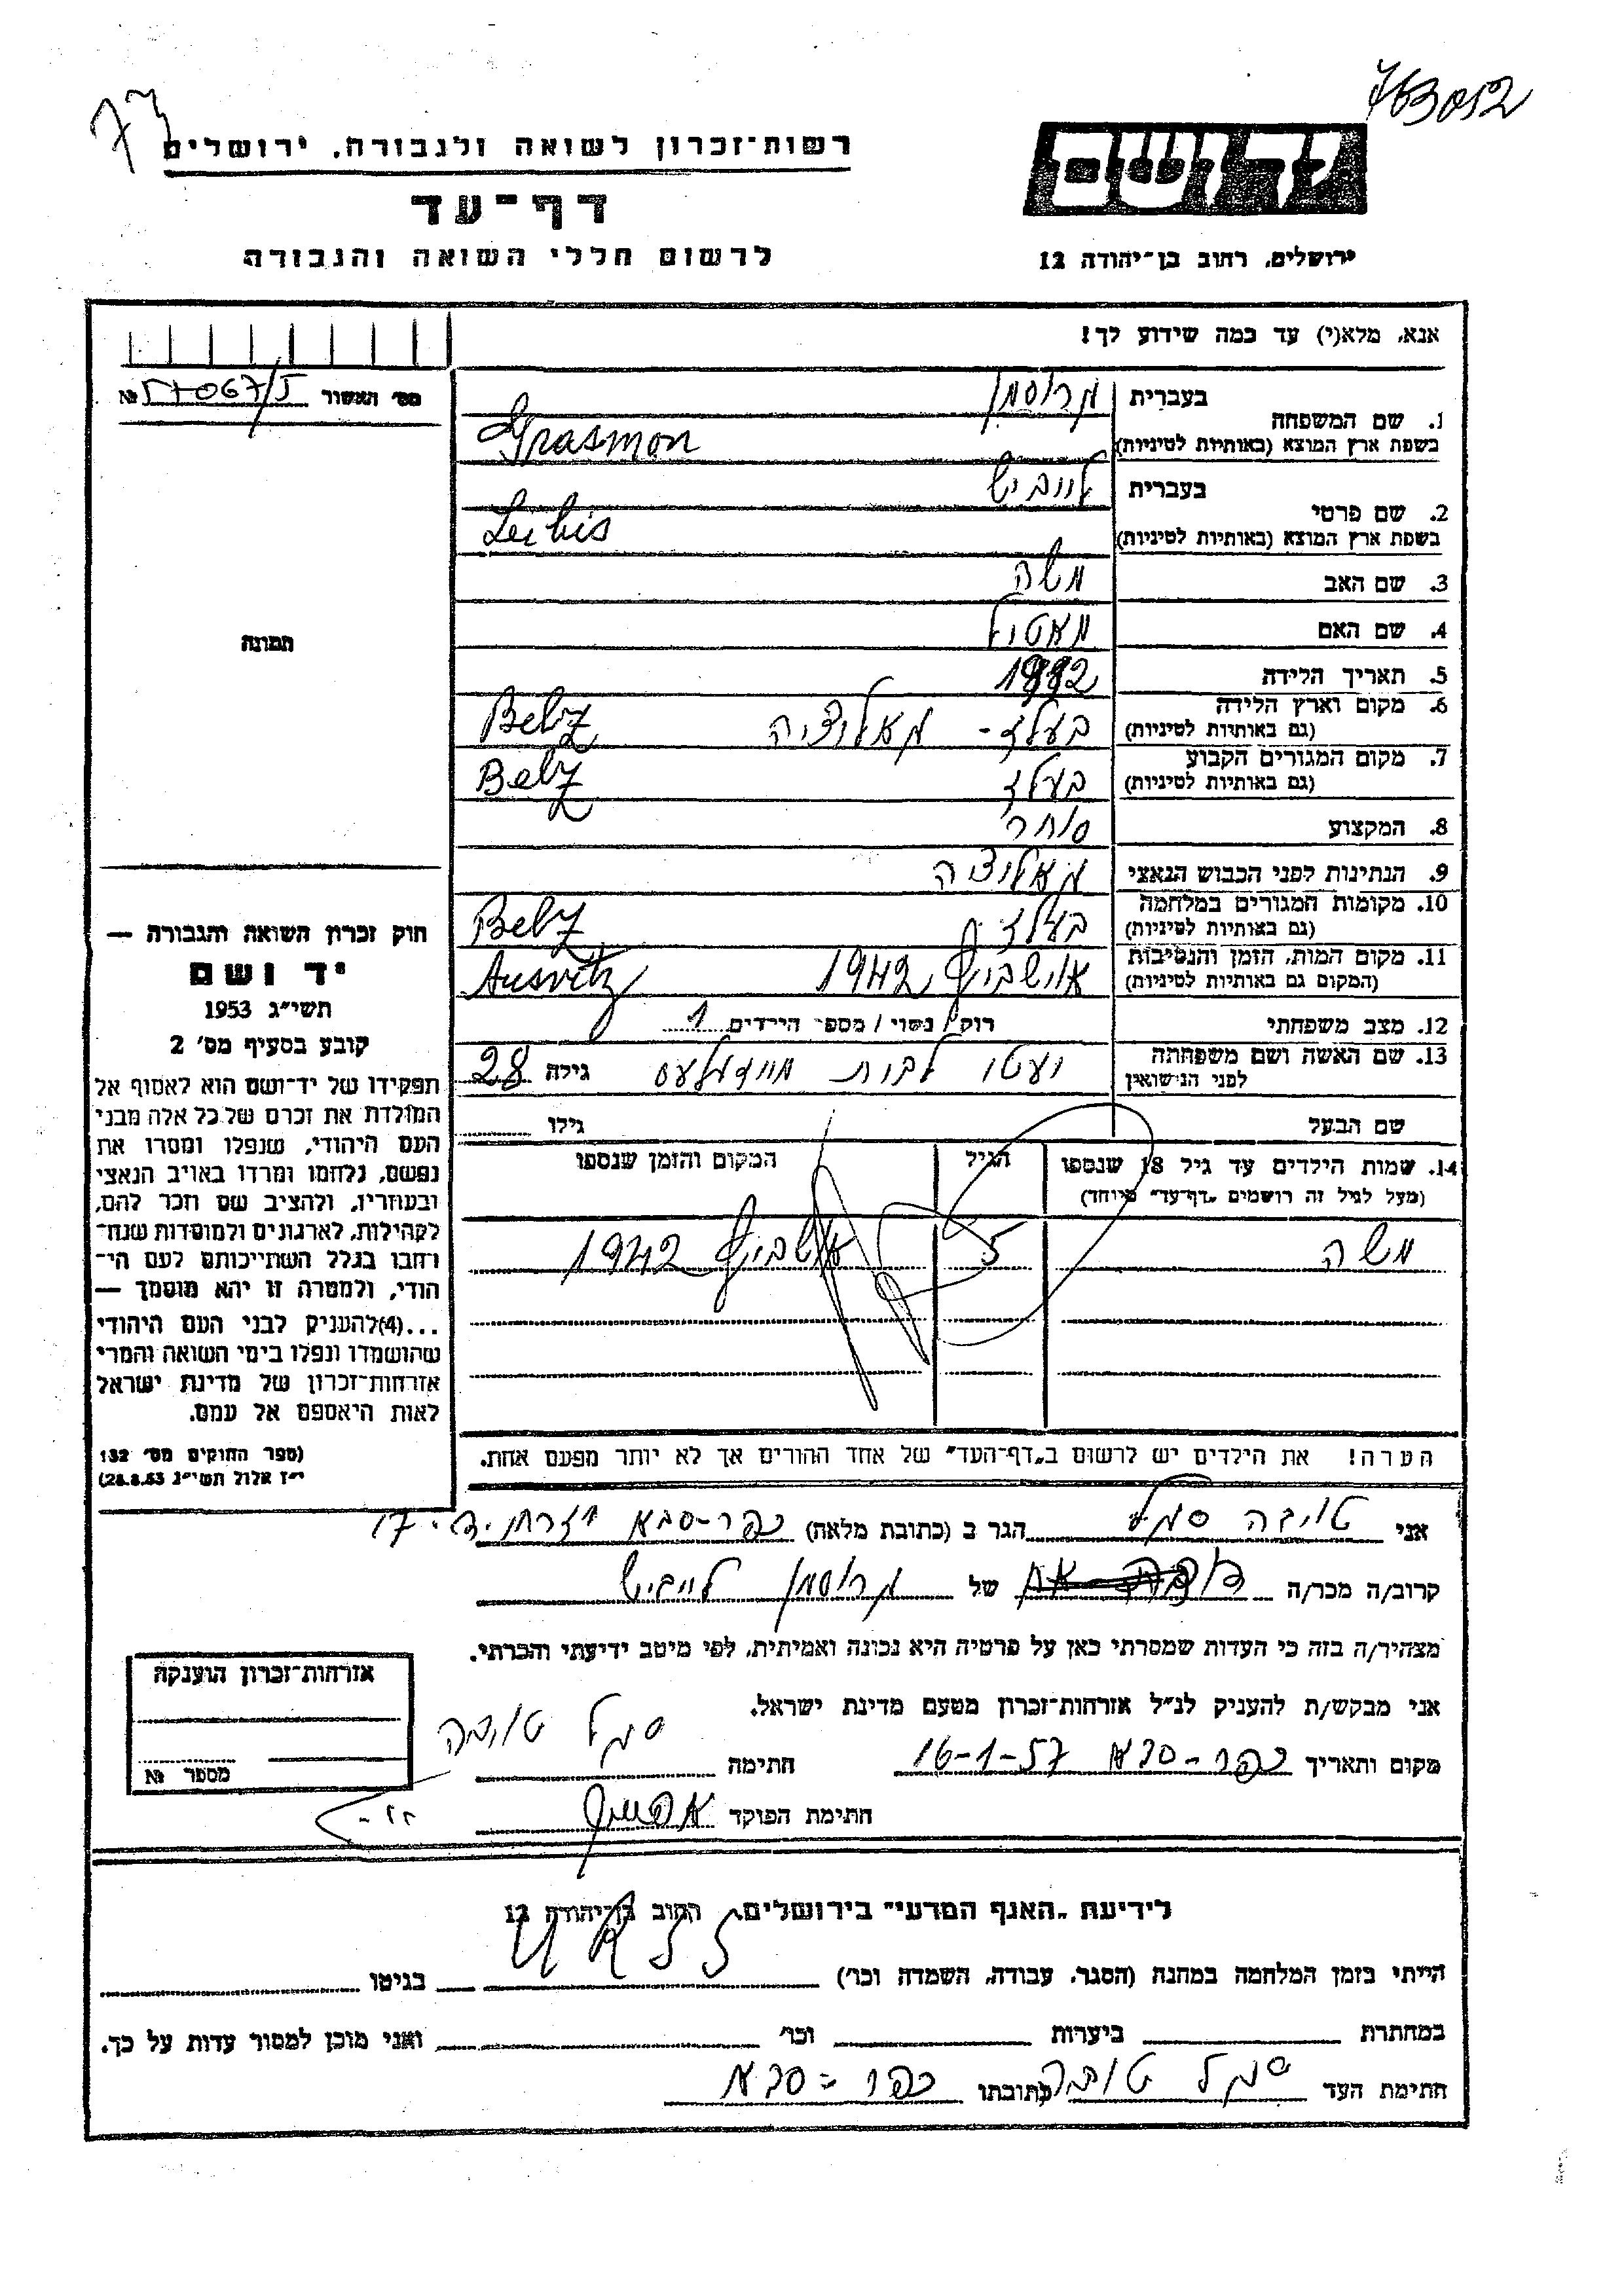 763012
73
רשות־זכרון לשואה ולגבורה, ירושלים
יד ושם
דף־עד
לרשום חללי השואה והגבורה
ירושלים, רחוב בן־יהודה 12
אנא, מלא(י) עד כמה שידוע לך!
מס׳ האשור № 57067/5
1. שם המשפחה בעברית גרוסמן
בשפת ארץ המוצא (באותיות לטיניות) Grasmon
2. שם פרטי בעברית לייביש
בשפת ארץ המוצא (באותיות לטיניות) Leibis
3. שם האב משה
4. שם האם מאטיל
תמונה
5. תאריך הלידה
6. מקום וארץ הלידה בעלז - גאליציה Belz
(גם באותיות לטיניות)
7. מקום המגורים הקבוע בעלז Belz
(גם באותיות לטיניות)
8. המקצוע סוחר
9. הנתינות לפני הכבוש הנאצי גאליציה
10. מקומות המגורים במלחמה בעלז Belz
(גם באותיות לטיניות)
11. מקום המות, הזמן והנסיבות אוישביץ 1942 Ausvitz
(המקום גם באותיות לטיניות)
12. מצב משפחתי רוק/ נשוי / מספר הילדים 1
13. שם האשה ושם משפחתה לפני הנישואין יעטי לבית גילה 28
שם הבעל גילו
14. שמות הילדים עד גיל 18 שנספו הגיל המקום והזמן שנספו
(מעל לגיל זה רושמים „דף־עד״ מיוחד)
משה 5 אושביץ 1942
הערה! את הילדים יש לרשום ב„דף־העד״ של אחד ההורים אך לא יותר מפעם אחת.
חוק זכרון השואה והגבורה —
יד ושם
תשי״ג 1953
קובע בסעיף מס׳ 2
תפקידו של יד־ושם הוא לאסוף אל
המולדת את זכרם של כל אלה מבני
העם היהודי, שנפלו ומסרו את
נפשם, נלחמו ומרדו באויב הנאצי
ובעוזריו, ולהציב שם וזכר להם,
לקהילות, לארגונים ולמוסדות שנח־
רחבו בגלל השתייכותם לעם הי־
הודי, ולמטרה זו יהא מוסמך —
...(4)להעניק לבני העם היהודי
שהושמדו ונפלו בימי השואה והמרי
אזרחות־זכרון של מדינת ישראל
לאות היאספם אל עמם.
(ספר החוקים מס׳ 132
י״ז אלול תשי״ג 28.8.53)
אני טויבה סגל הגר ב (כתובת מלאה) כפר-סבא 17
קרוב/ה מכר/ה של גרוסמן לייביש
מצהיר/ה בזה כי העדות שמסרתי כאן על פרטיה היא נכונה ואמיתית, לפי מיטב ידיעתי והכרתי.
אני מבקש/ת להעניק לנ״ל אזרחות־זכרון מטעם מדינת ישראל.
מקום ותאריך כפר-סבא 16-1-57 חתימה סגל טויבה
חתימת הפוקד
אזרחות־זכרון הוענקה
מספר №
לידיעת „האגף המדעי״ בירושלים, רחוב בן־יהודה 12
הייתי בזמן המלחמה במחנה (הסגר, עבודה, השמדה וכו׳) URSS בגיטו
במחתרת ביערות וכו׳ ואני מוכן למסור עדות על כך.
חתימת העד סגל טויבה כתובתו כפר-סבא